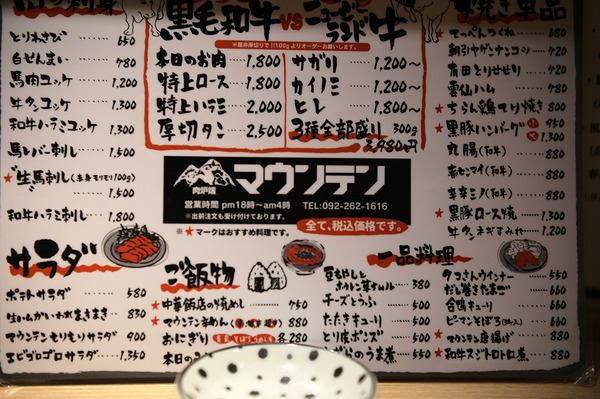 とりわさび 650
白せんまい 780
馬肉ユッケ 1,200
牛タンユッケ 1,300
和牛ハラミユッケ 1,300
馬レバー刺し 1,500
★生馬刺し(赤身モリモリ100g) 1,500
和牛ハラミ刺し 1,800
サラダ
ポテトサラダ 580
830
マウンテンもりもりサラダ 900
エビゴロゴロサラダ 1,350
黒毛和牛 VS ニュージーランド牛
※厚切りで!!100gよりオーダーお願いします。
本日のお肉 1,800
特上ロース 1,800
特上ハラミ 2,000
厚切タン 2,500
サガリ 1,200〜
カイノミ 1,200〜
ヒレ 1,800〜
3種全部盛り 300g 3,980円
肉炉端 マウンテン
営業時間 pm18時〜am4時 TEL:092-262-1616
※出前注文も受け付けております。
全て、税込価格です。
※★マークはおすすめ料理です。
ご飯物
★中華飯店の焼めし 750
★マウンテン辛めん 880
おにぎり 各280
本日の
一品料理
豆もやしとホウレン草ナムル 380
チーズとうふ 500
たたきキューリ 500
とり皮ポンズ 500
うま煮 550
タコさんウインナー 550
だし巻たまご 660
合鴨キューリ 660
★ピーマンそぼろ 880
★マウンテン唐揚げ 880
★和牛スジトロトロ煮 880
焼き単品
★てっぺんつくね 680
朝引ヤゲンナンコツ 720
有田とりせせり 720
雲仙ハム 780
★ちらん鶏てり焼き 800
★黒豚ハンバーグ 小 950 大 1,300
丸腸(和牛) 880
赤センマイ(和牛) 880
辛辛ミノ(和牛) 880
★黒豚ロース焼 1,300
牛タンネギまみれ 1,200